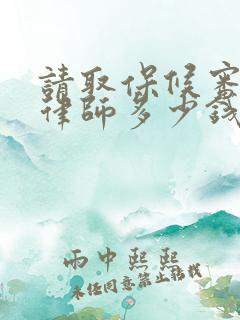 請取保候審
律師多少錢
雨中熙熙
未经同意禁止转载